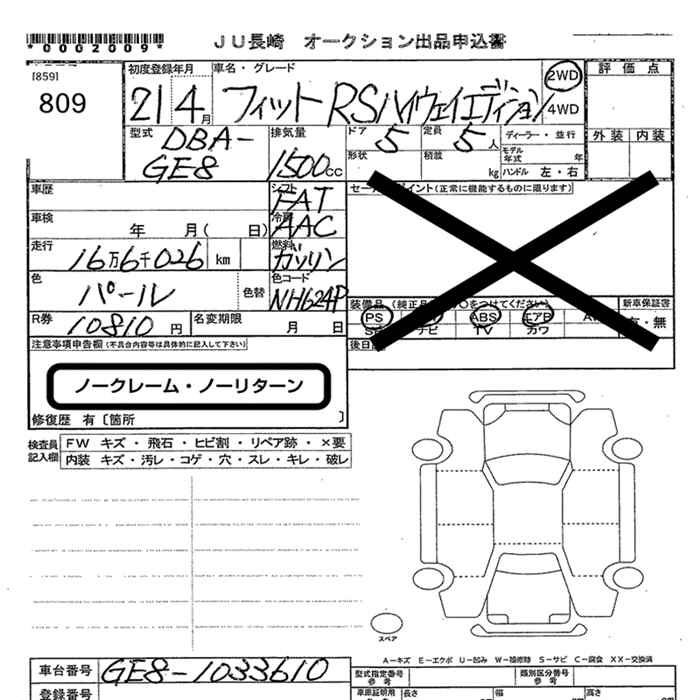 *0002009*
JU長崎 オークション出品申込書
[859]
809
初度登録年月
21 4月
車名・グレード
フィットRSハイウェイエディション
2WD
4WD
評価点
外装 内装
型式
DBA-
GE8
排気量
1500cc
ドア
5
定員
5人
ディーラー・並行
形状
積載
kg
モデル年式
年
ハンドル 左・右
車歴
シフト
FAT
セー
イント(正常に機能するものに限ります)
車検
年 月( 日)
冷房
AAC
走行
16万6千026 km
燃料
ガソリン
色
パール
色替
色コード
NH624P
装備品 (純正
○をつけてください)
新車保証書
PS
ABS
エアB
有・無
ナビ
TV
カワ
R券
10810 円
名変期限
月 日
後日
注意事項申告欄 (不具合内容等は具体的に記入して下さい)
ノークレーム・ノーリターン
修復歴 有〔箇所 〕
検査員
記入欄
FW キズ・飛石・ヒビ割・リペア跡・×要
内装 キズ・汚レ・コゲ・穴・スレ・キレ・破レ
スペア
A-キズ E-エクボ U-凹み W-補修跡 S-サビ C-腐食 XX-交換済
車台番号
GE8-1033610
型式指定番号
参考
類別区分番号
参考
登録番号
車庫証明用
参考
長さ
幅
高さ